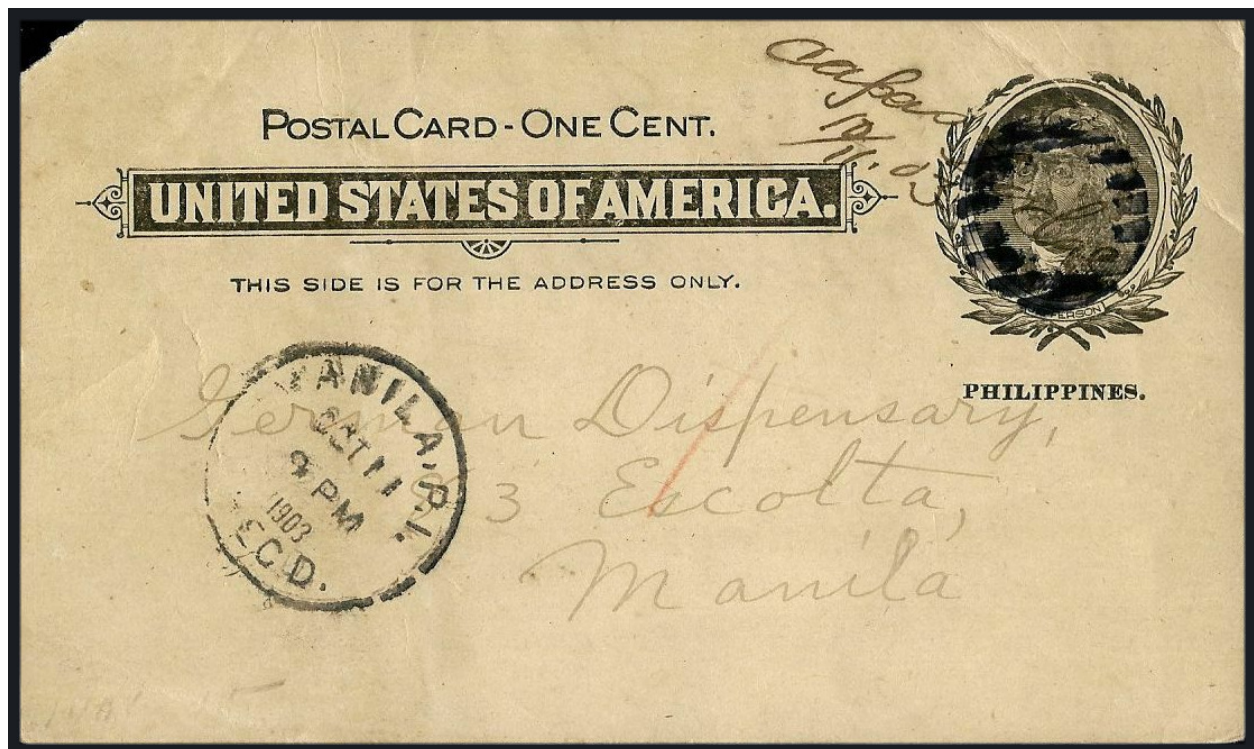 POSTAL CARD - ONE CENT.
UNITED STATES OF AMERICA.
THIS SIDE IS FOR THE ADDRESS ONLY.
10/11.03
JEFFERSON
PHILIPPINES.
MANILA, P.I.
OCT 11
9 PM
1903
REC'D.
German Dispensary,
Escolta,
Manila